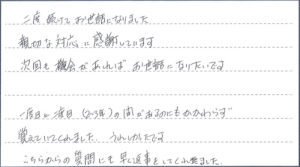 二度続けてお世話になりました
親切な対応に感謝しています
次回も機会があればお世話になりたいです
一度目と二度目(2~3年)の間があるのにもかかわらず
覚えていてくれました うれしかったです
こちらからの質問にも早く返事をしてくれました。